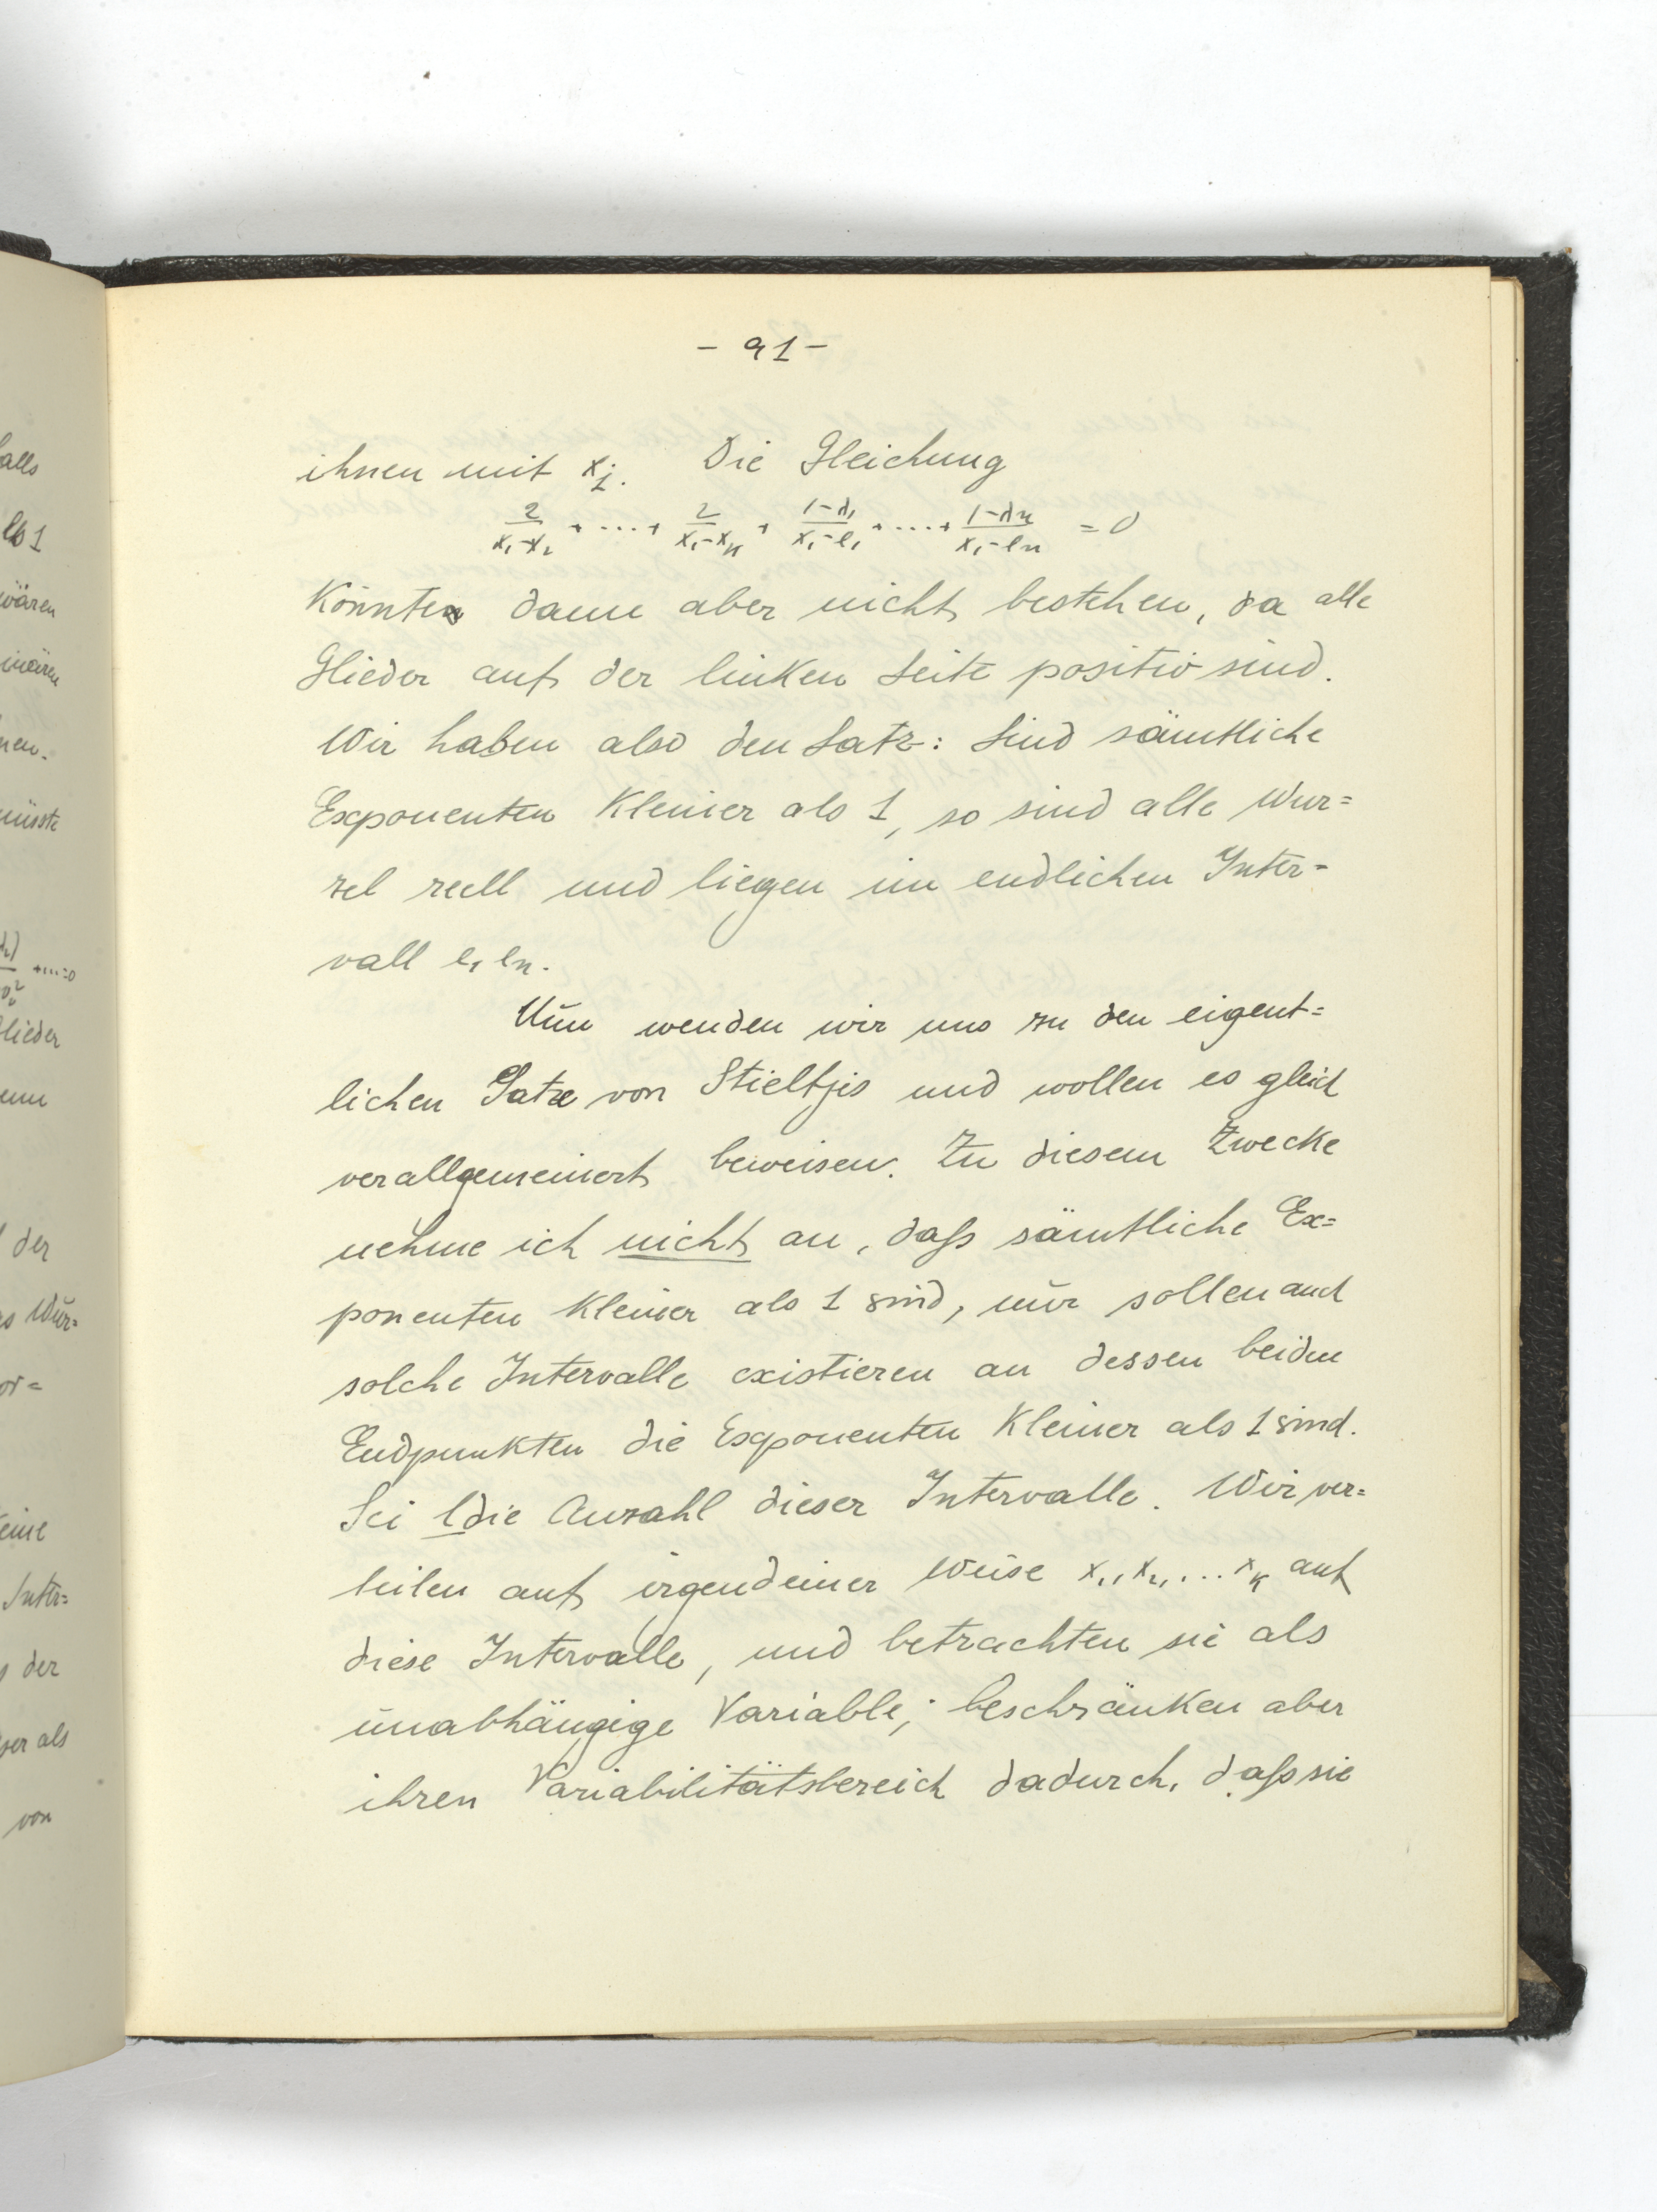 - 91 -
ihnen mit x₁. Die Gleichung
2/(x₁-x₂) + ... + 2/(x₁-xₖ) + (1-λ₁)/(x₁-e₁) + ... + (1-λn)/(x₁-en) = 0
Könnte dann aber nicht bestehen, da alle
Glieder auf der linken Seite positiv sind.
Wir haben also den Satz: Sind sämtliche
Exponenten Kleiner als 1, so sind alle Wur=
zel reell und liegen im endlichen Inter=
vall e₁ en.
Nun wenden wir uns zu den eigent=
lichen Satze von Stieltjis und wollen es gleich
verallgemeinert beweisen. Zu diesem Zwecke
nehme ich nicht an, daſs sämtliche Ex=
ponenten Kleiner als 1 sind, nur sollen auch
solche Intervalle existieren an dessen beiden
Endpunkten die Exponenten Kleiner als 1 sind.
Sei l die Anzahl dieser Intervalle. Wir ver=
teilen auf irgendeiner Weise x₁, x₂, ... xₖ auf
diese Intervalle, und betrachten sie als
unabhängige Variable; beschränken aber
ihren Variabilitätsbereich dadurch, daſs sie
alls
wären
wären
nen.
müsste
+...=0
Glieder
der
Wur=
or=
eine
Inter=
der
als
von